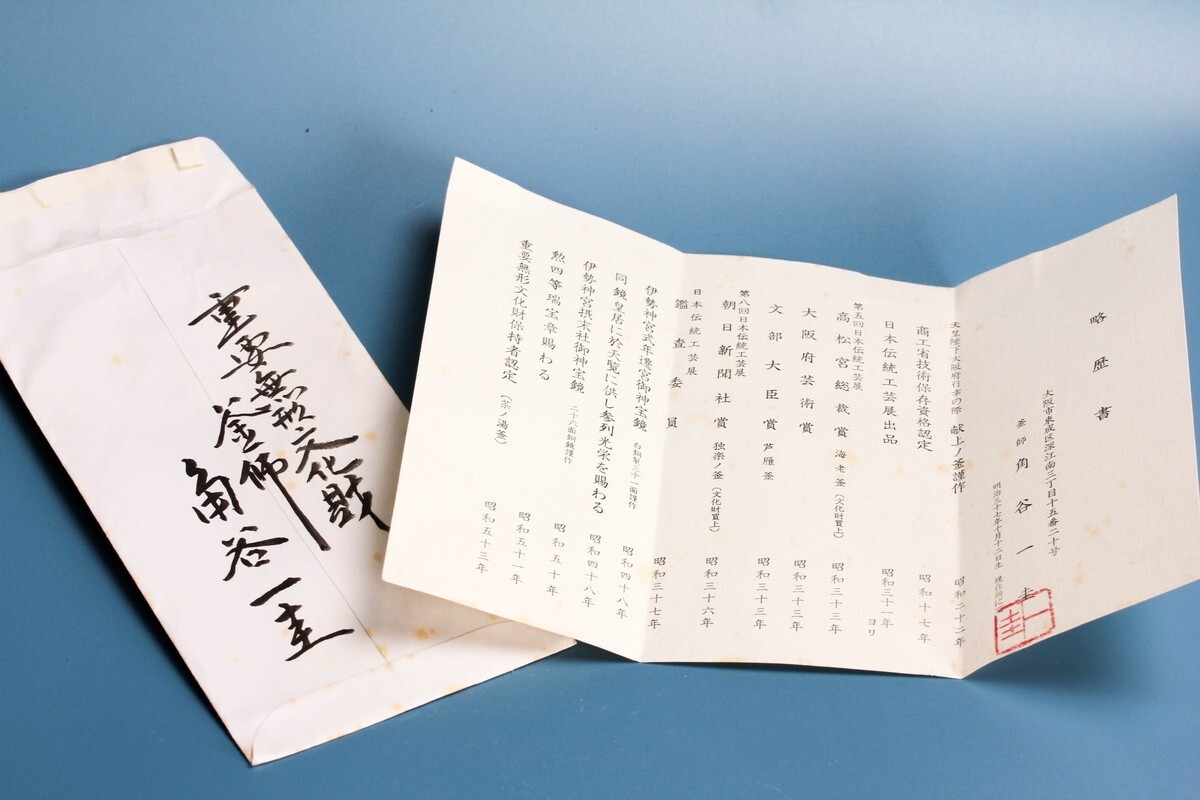 重要無形文化財
釜師
角谷一圭
略歴書
大阪市東成区深江南三丁目十五番二十号
釜師 角谷一圭
明治三十七年十月十二日生
一圭
天皇陛下大阪府行幸の際 献上ノ釜謹作 昭和二十二年
商工省技術保存資格認定 昭和十七年
日本伝統工芸展出品 昭和三十一年ヨリ
第五回日本伝統工芸展
高松宮総裁賞 海老釜(文化財買上) 昭和三十三年
大阪府芸術賞 昭和三十三年
文部大臣賞 芦雁釜 昭和三十三年
第八回日本伝統工芸展
朝日新聞社賞 独楽ノ釜(文化財買上) 昭和三十六年
日本伝統工芸展
鑑査委員 昭和三十七年
伊勢神宮式年遷宮御神宝鏡 白銅製三十一面謹作 昭和四十八年
同鏡皇居に於天覧に供し参列光栄を賜わる 昭和四十八年
伊勢神宮摂末社御神宝鏡 二十六面銅鏡謹作 昭和五十年
勲四等瑞宝章賜わる 昭和五十一年
重要無形文化財保持者認定(茶ノ湯釜) 昭和五十三年